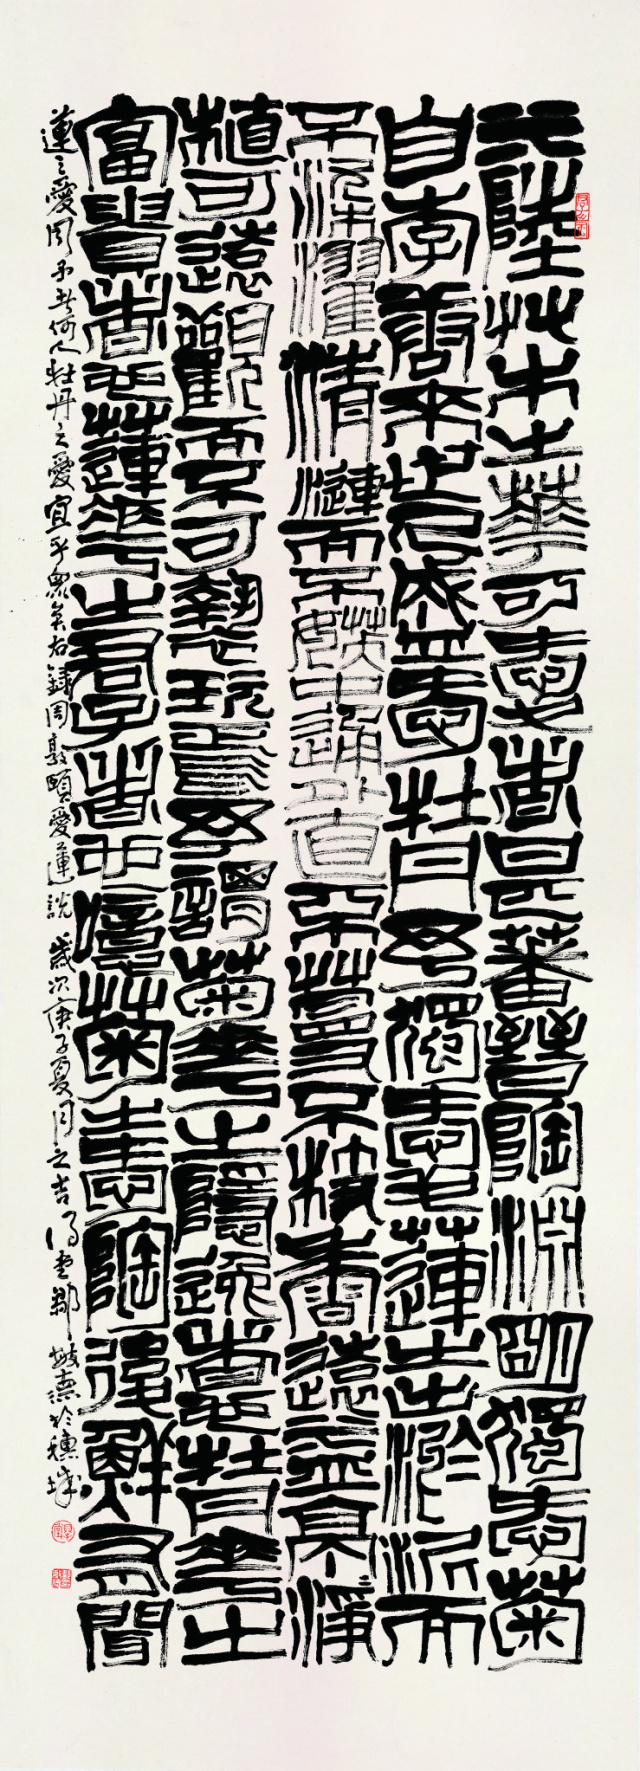 水陸艸木之華可愛者甚蕃晉陶淵明獨愛菊
自李唐來世人盛愛牡丹予獨愛蓮之出淤泥而
不染濯清漣而不妖中通外直不蔓不枝香遠益亭亭淨
植可遠觀而不可褻玩焉予謂菊華之隱逸者也牡丹華之
富貴者也蓮華之君子者也噫菊之愛陶後鮮有聞
蓮之愛同予者何人牡丹之愛宜乎衆矣右錄周敦頤愛蓮說歲次庚子夏月之吉得堂鄒敏德於穗城